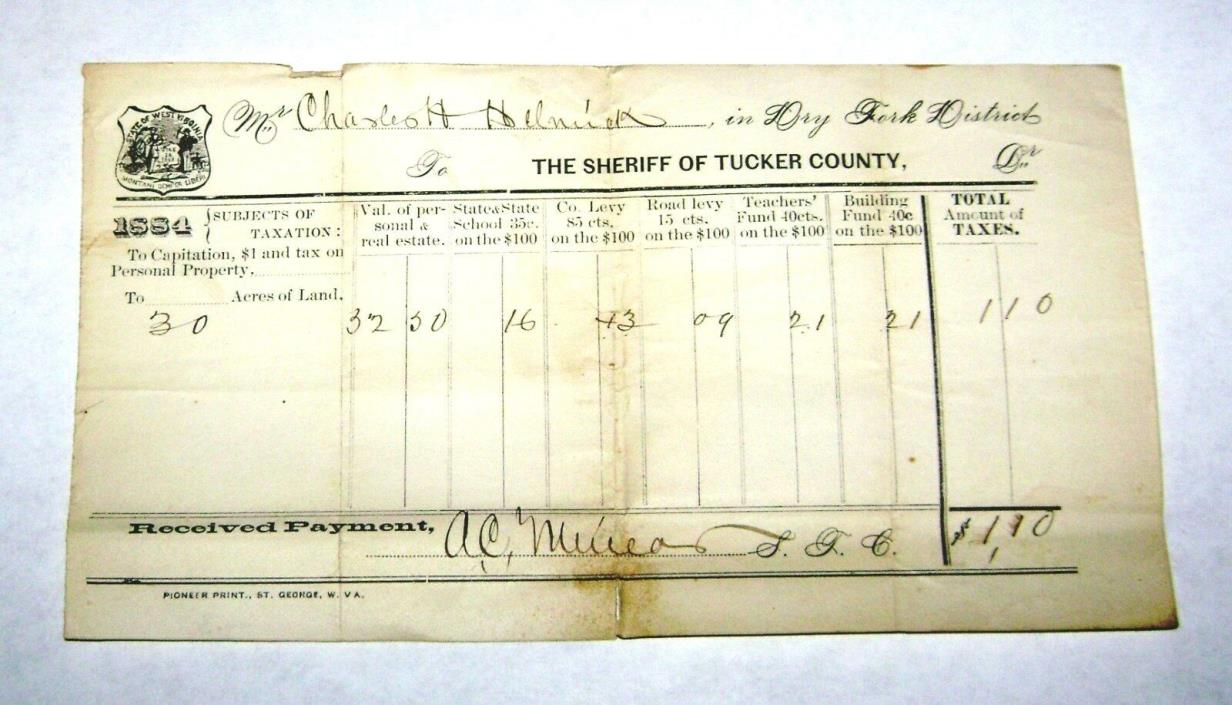 STATE OF WEST VIRGINIA
MONTANI SEMPER LIBERI
Mr. Charles H Helmick, in Dry Fork District
To THE SHERIFF OF TUCKER COUNTY, Dr.
1884 { SUBJECTS OF TAXATION: Val. of personal & real estate. State & State School 35c. on the $100 Co. Levy 85 cts. on the $100 Road levy 15 cts. on the $100 Teachers' Fund 40cts. on the $100 Building Fund 40c on the $100 TOTAL Amount of TAXES.
To Capitation, $1 and tax on
Personal Property,
To Acres of Land,
30 32 50 16 43 09 21 21 1 10
Received Payment, A.C. S. T. C. $ 1,10
PIONEER PRINT., ST. GEORGE, W. VA.